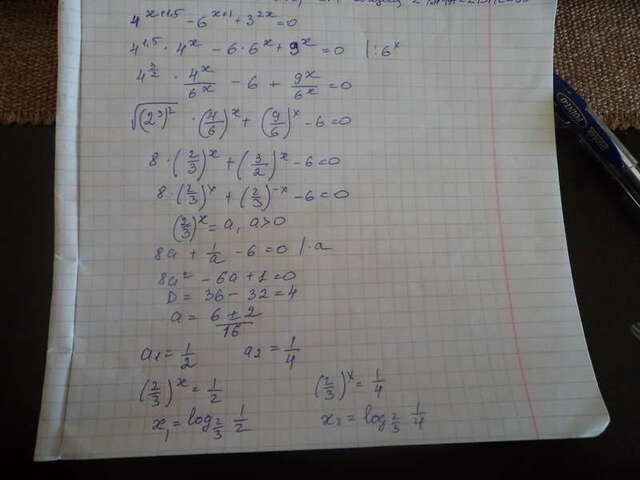 4^{x+1,5} - 6^{x+1} + 3^{2x} = 0
4^{1,5} · 4^x - 6 · 6^x + 9^x = 0 |: 6^x
4^{3/2} · 4^x/6^x - 6 + 9^x/6^x = 0
√(2^3)^2 · (4/6)^x + (9/6)^x - 6 = 0
8 · (2/3)^x + (3/2)^x - 6 = 0
8 · (2/3)^x + (2/3)^{-x} - 6 = 0
(2/3)^x = a, a > 0
8a + 1/a - 6 = 0 | · a
8a^2 - 6a + 1 = 0
D = 36 - 32 = 4
a = (6 ± 2)/16
a_1 = 1/2 a_2 = 1/4
(2/3)^x = 1/2 (2/3)^x = 1/4
x_1 = log_{2/3} 1/2 x_2 = log_{2/3} 1/4